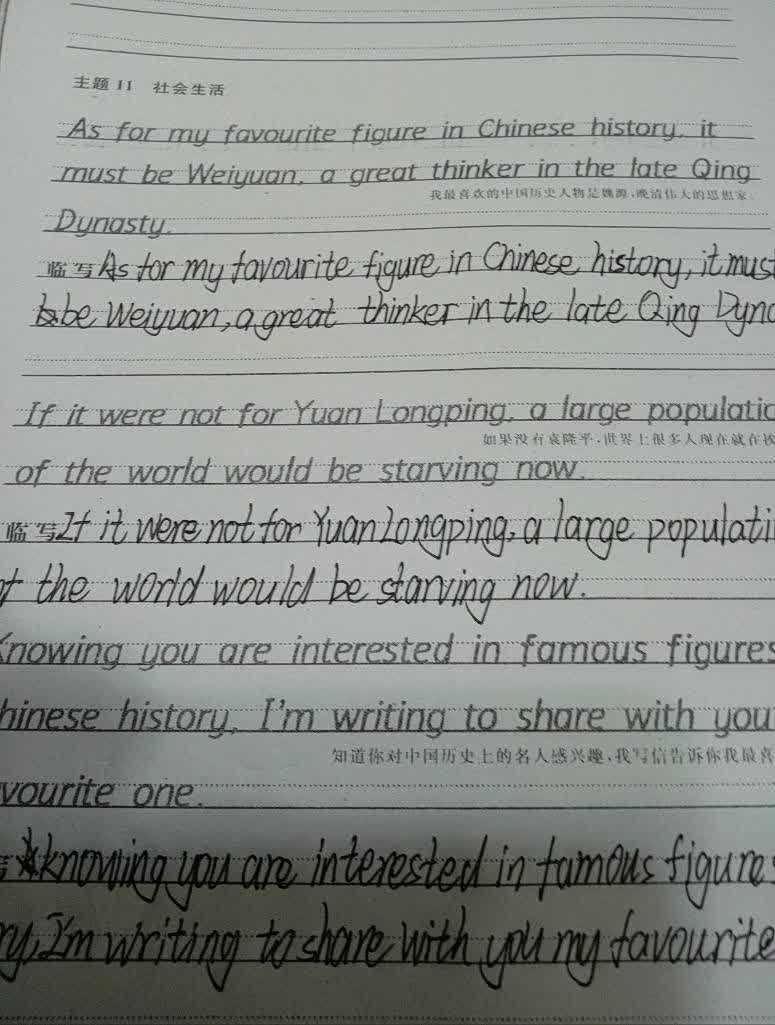 主题 11 社会生活
As for my favourite figure in Chinese history, it
must be Weiyuan, a great thinker in the late Qing
我最喜欢的中国历史人物是魏源,晚清伟大的思想家。
Dynasty.
临写 As for my favourite figure in Chinese history, it must
be Weiyuan, a great thinker in the late Qing Dyna
If it were not for Yuan Longping, a large populatio
如果没有袁隆平,世界上很多人现在就在挨
of the world would be starving now.
临写 If it were not for Yuan Longping, a large populati
of the world would be starving now.
Knowing you are interested in famous figures
hinese history, I'm writing to share with you
知道你对中国历史上的名人感兴趣,我写信告诉你我最喜
vourite one.
写 knowing you are interested in famous figure
ry, I'm writing to share with you my favourite